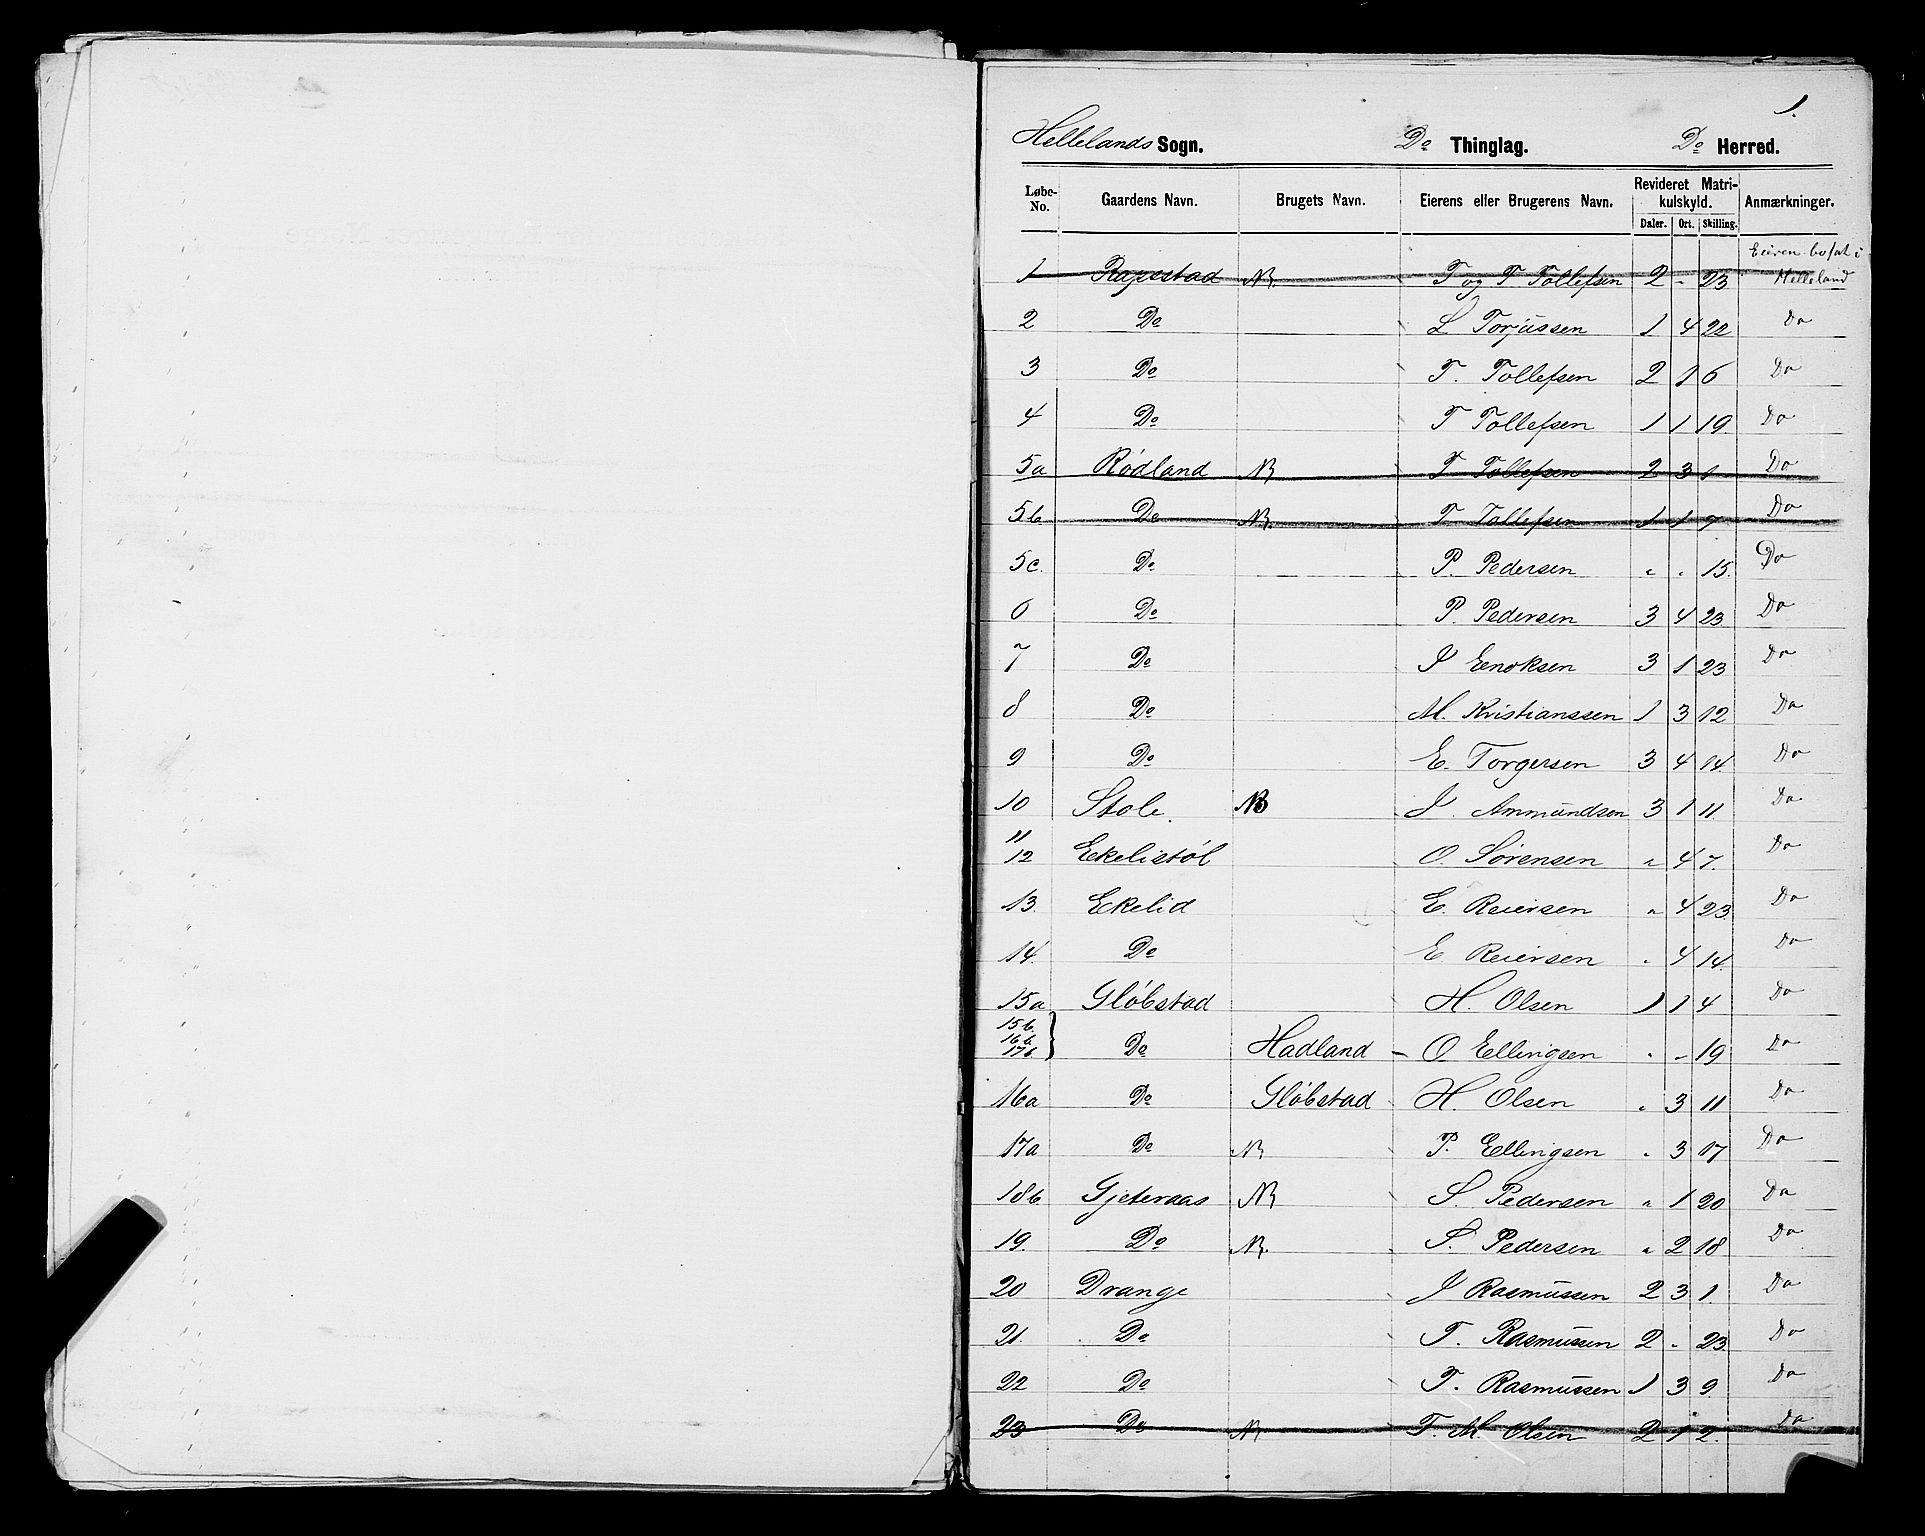 1.
Hellelands Sogn. Do Thinglag. Do Herred.
Løbe-No. Gaardens Navn. Brugets Navn. Eierens eller Brugerens Navn. Revideret Matrikulskyld. Anmærkninger.
Daler. Ort. Skilling.
1 Rapstad NB T og T Tollefsen 2 - 23 Eieren bosat i Helleland
2 Do L Torjussen 1 4 22 Do
3 Do T. Tollefsen 2 1 6 Do
4 Do T Tollefsen 1 1 19. Do
5a Rødland NB T Tollefsen 2 3 1 Do
5b Do NB. T Tollefsen 1 1 7 Do
5c. Do P. Pedersen " " 15. Do
6 Do P. Pedersen 3 4 23 Do
7 Do I Enoksen 3 1 23 Do
8 Do M. Kristianssen 1 3 12 Do
9 Do E. Torgersen 3 4 14 Do
10 Stole. NB I. Ammundsen 3 1 11 Do
11 12 Ekelistøl O. Sørensen " 4 7. Do
13. Ekelid E. Reiersen " 4 23. Do
14. Do E. Reiersen " 4 14. Do
15a Gløbstad H. Olsen 1 1 4 Do
15b. 16b. 17b } Do Hadland – O Ellingsen " - 19 Do
16a Do Gløbstad H. Olsen " 3 11 Do
17a Do NB P. Ellingsen " 3 17 Do
18b. Gjeteraas NB S. Pedersen " 1 20 Do
19. Do NB. S. Pedersen " 2 18 Do
20 Drange I Rasmussen 2 3 1. Do
21. Do T. Rasmussen 2 - 23 Do
22 Do T. Rasmussen 1 3 9. Do
23 Do NB T. M. Olsen 2 1 2. Do